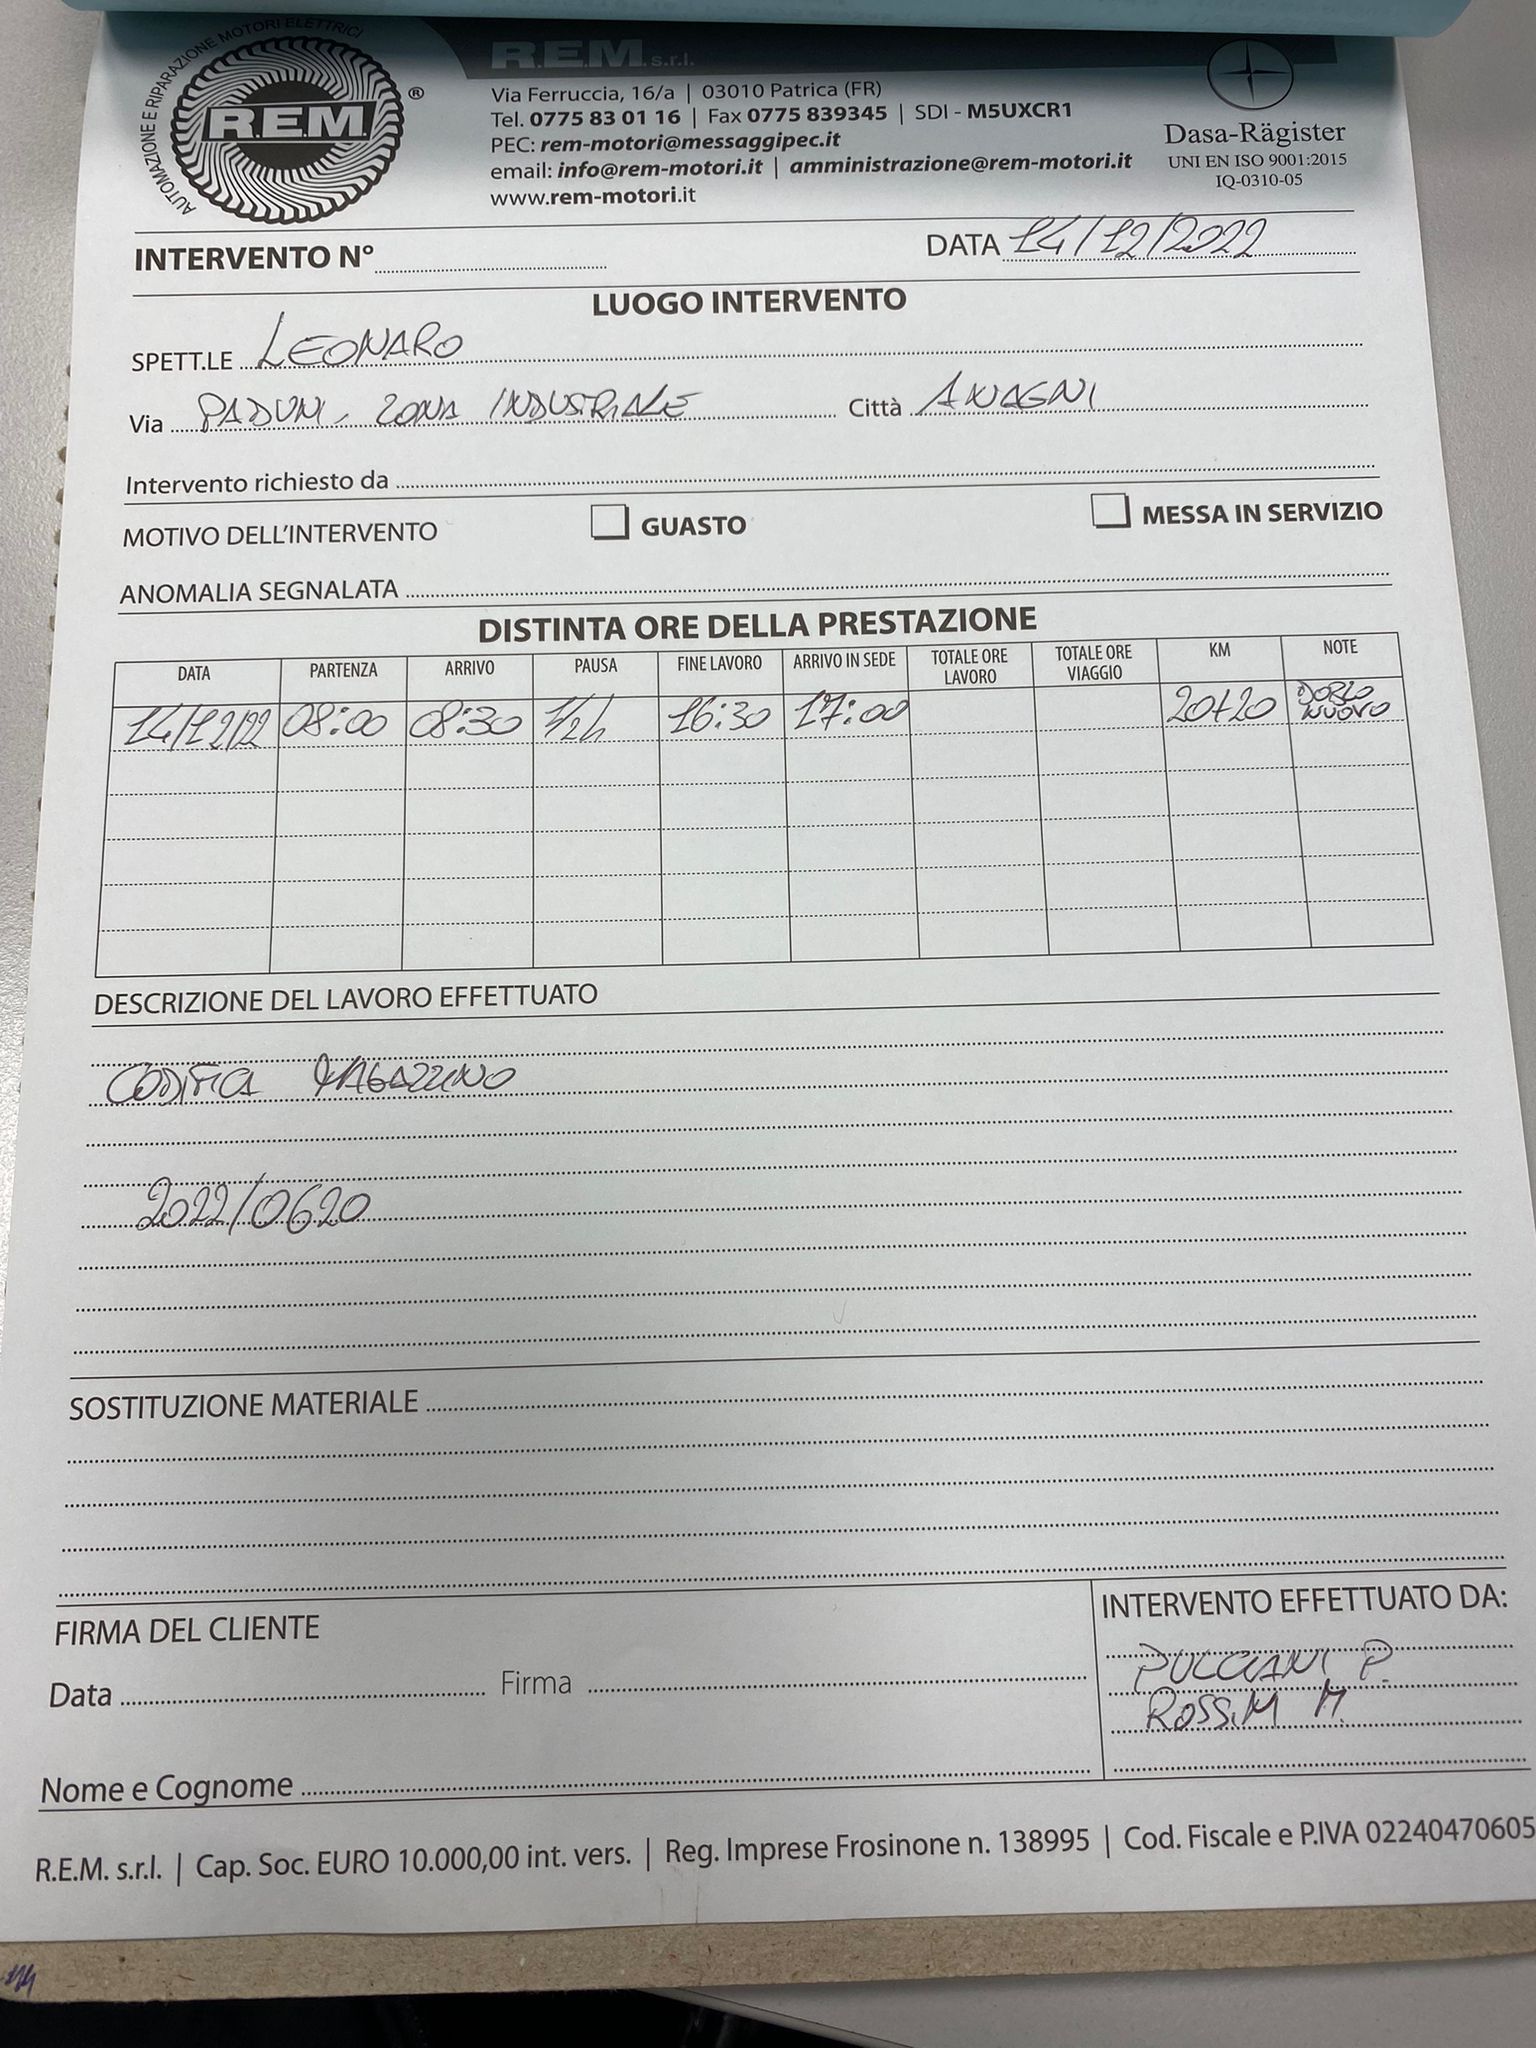 AUTOMAZIONE E RIPARAZIONE MOTORI ELETTRICI
R.E.M. ®
R.E.M. s.r.l.
Via Ferruccia, 16/a | 03010 Patrica (FR)
Tel. 0775 83 01 16 | Fax 0775 839345 | SDI - M5UXCR1
PEC: rem-motori@messaggipec.it
email: info@rem-motori.it | amministrazione@rem-motori.it
www.rem-motori.it
Dasa-Rägister
UNI EN ISO 9001:2015
IQ-0310-05
INTERVENTO N° DATA 14/12/2022
LUOGO INTERVENTO
SPETT.LE LEONARO
Via PADUNI, ZONA INDUSTRIALE Città ANAGNI
Intervento richiesto da
MOTIVO DELL'INTERVENTO GUASTO MESSA IN SERVIZIO
ANOMALIA SEGNALATA
DISTINTA ORE DELLA PRESTAZIONE
DATA PARTENZA ARRIVO PAUSA FINE LAVORO ARRIVO IN SEDE TOTALE ORE LAVORO TOTALE ORE VIAGGIO KM NOTE
14/12/22 08:00 08:30 1/2h 16:30 17:00 20+20 DOBLO NUOVO
DESCRIZIONE DEL LAVORO EFFETTUATO
CODIFICA MAGAZZINO
2022/0620
SOSTITUZIONE MATERIALE
FIRMA DEL CLIENTE
Data Firma
Nome e Cognome
INTERVENTO EFFETTUATO DA:
PULCIANI P.
ROSSI M.
R.E.M. s.r.l. | Cap. Soc. EURO 10.000,00 int. vers. | Reg. Imprese Frosinone n. 138995 | Cod. Fiscale e P.IVA 02240470605